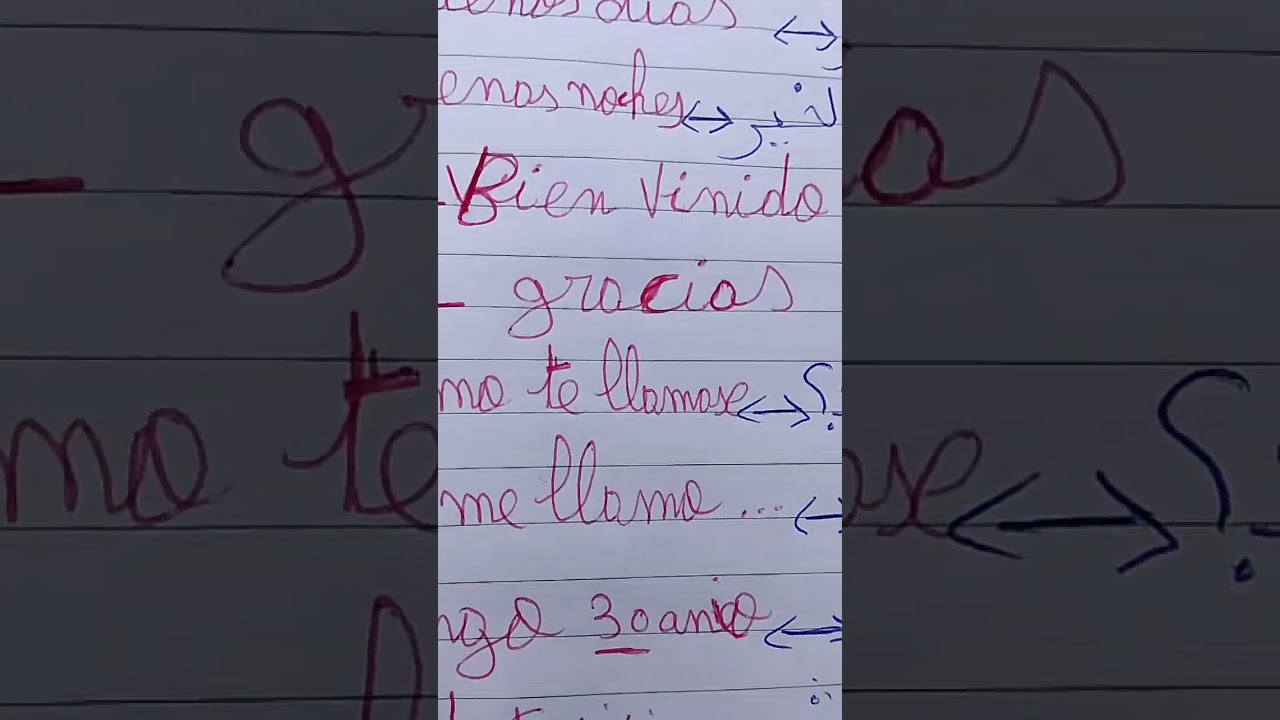 enos dias ↔
enas noches ↔ لخير
- Bien Vinido
- gracias
mo te llamase ↔ ؟
me llamo ... ↔
ngo 30 anio ↔